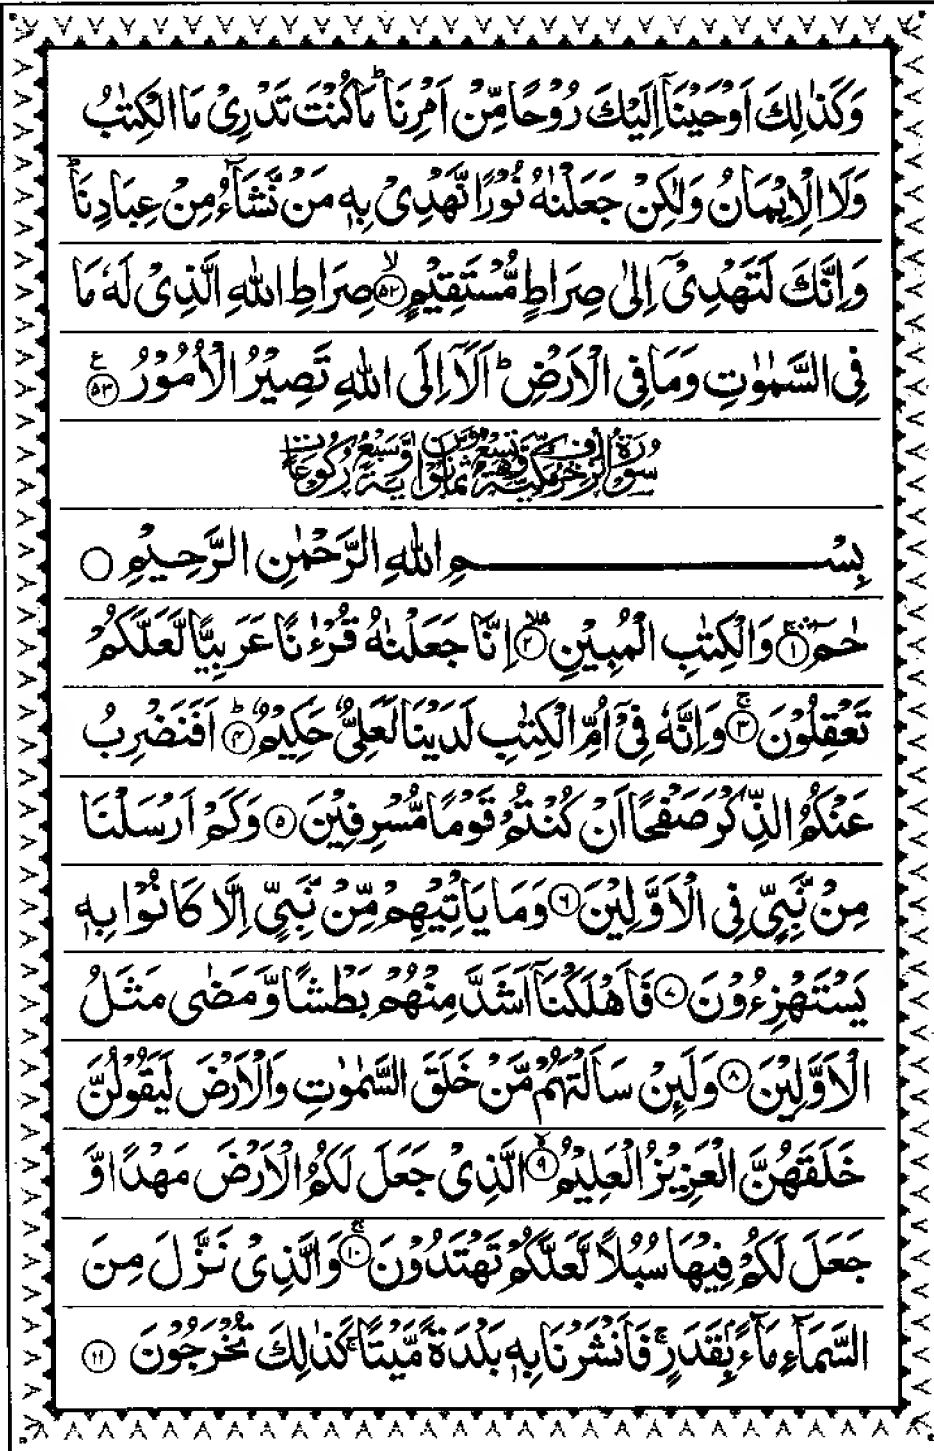 وَكَذٰلِكَ اَوْحَيْنَاۤ اِلَيْكَ رُوْحًا مِّنْ اَمْرِنَا ؕ مَا كُنْتَ تَدْرِىْ مَا الْكِتٰبُ
وَلَا الْاِيْمَانُ وَلٰكِنْ جَعَلْنٰهُ نُوْرًا نَّهْدِىْ بِهٖ مَنْ نَّشَآءُ مِنْ عِبَادِنَا ؕ
وَاِنَّكَ لَتَهْدِىْۤ اِلٰى صِرَاطٍ مُّسْتَقِيْمٍ ۙ‏﴿۵۲﴾ صِرَاطِ اللّٰهِ الَّذِىْ لَهٗ مَا
فِى السَّمٰوٰتِ وَمَا فِى الْاَرْضِ ؕ اَلَاۤ اِلَى اللّٰهِ تَصِيْرُ الْاُمُوْرُ ﴿۵۳﴾ ع
سُوْرَةُ الزُّخْرُفِ مَكِّيَّةٌ وَّهِىَ تِسْعٌ وَّثَمَانُوْنَ اٰيَةً وَّسَبْعُ رُكُوْعَاتٍ
بِسْمِ اللّٰهِ الرَّحْمٰنِ الرَّحِيْمِ ○
حٰمٓ ۚ﴿۱﴾ وَالْكِتٰبِ الْمُبِيْنِ ۙ﴿۲﴾ اِنَّا جَعَلْنٰهُ قُرْءٰنًا عَرَبِيًّا لَّعَلَّكُمْ
تَعْقِلُوْنَ ۚ﴿۳﴾ وَاِنَّهٗ فِىْۤ اُمِّ الْكِتٰبِ لَدَيْنَا لَعَلِىٌّ حَكِيْمٌ ؕ﴿۴﴾ اَفَنَضْرِبُ
عَنْكُمُ الذِّكْرَ صَفْحًا اَنْ كُنْتُمْ قَوْمًا مُّسْرِفِيْنَ ﴿۵﴾ وَكَمْ اَرْسَلْنَا
مِنْ نَّبِىٍّ فِى الْاَوَّلِيْنَ ﴿۶﴾ وَمَا يَاْتِيْهِمْ مِّنْ نَّبِىٍّ اِلَّا كَانُوْا بِهٖ
يَسْتَهْزِءُوْنَ ﴿۷﴾ فَاَهْلَكْنَاۤ اَشَدَّ مِنْهُمْ بَطْشًا وَّمَضٰى مَثَلُ
الْاَوَّلِيْنَ ﴿۸﴾ وَلَئِنْ سَاَلْتَهُمْ مَّنْ خَلَقَ السَّمٰوٰتِ وَالْاَرْضَ لَيَقُوْلُنَّ
خَلَقَهُنَّ الْعَزِيْزُ الْعَلِيْمُ ۙ﴿۹﴾ الَّذِىْ جَعَلَ لَكُمُ الْاَرْضَ مَهْدًا وَّ
جَعَلَ لَكُمْ فِيْهَا سُبُلًا لَّعَلَّكُمْ تَهْتَدُوْنَ ۚ﴿۱۰﴾ وَالَّذِىْ نَزَّلَ مِنَ
السَّمَآءِ مَآءًۢ بِقَدَرٍ ۚ فَاَنْشَرْنَا بِهٖ بَلْدَةً مَّيْتًا ۚ كَذٰلِكَ تُخْرَجُوْنَ ﴿۱۱﴾